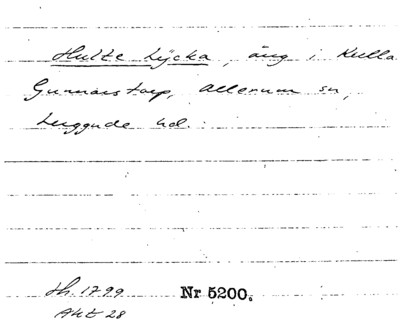 Hulte Lycka, äng i Kulla
Gunnarstorp, Allerum sn,
Luggude hd.
Sh. 1799 Nr 5200.
Akt 28